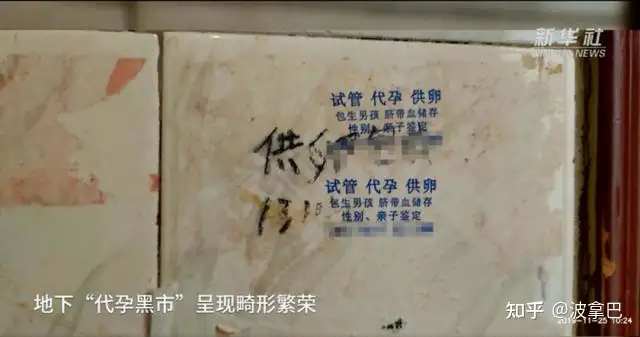 新华社
XINHUA NEWS
试管 代孕 供卵
包生男孩 脐带血储存
性别、亲子鉴定
供卵
试管 代孕 供卵
包生男孩 脐带血储存
性别、亲子鉴定
1310
地下“代孕黑市”呈现畸形繁荣
知乎 @波拿巴
2019-11-25 10:24